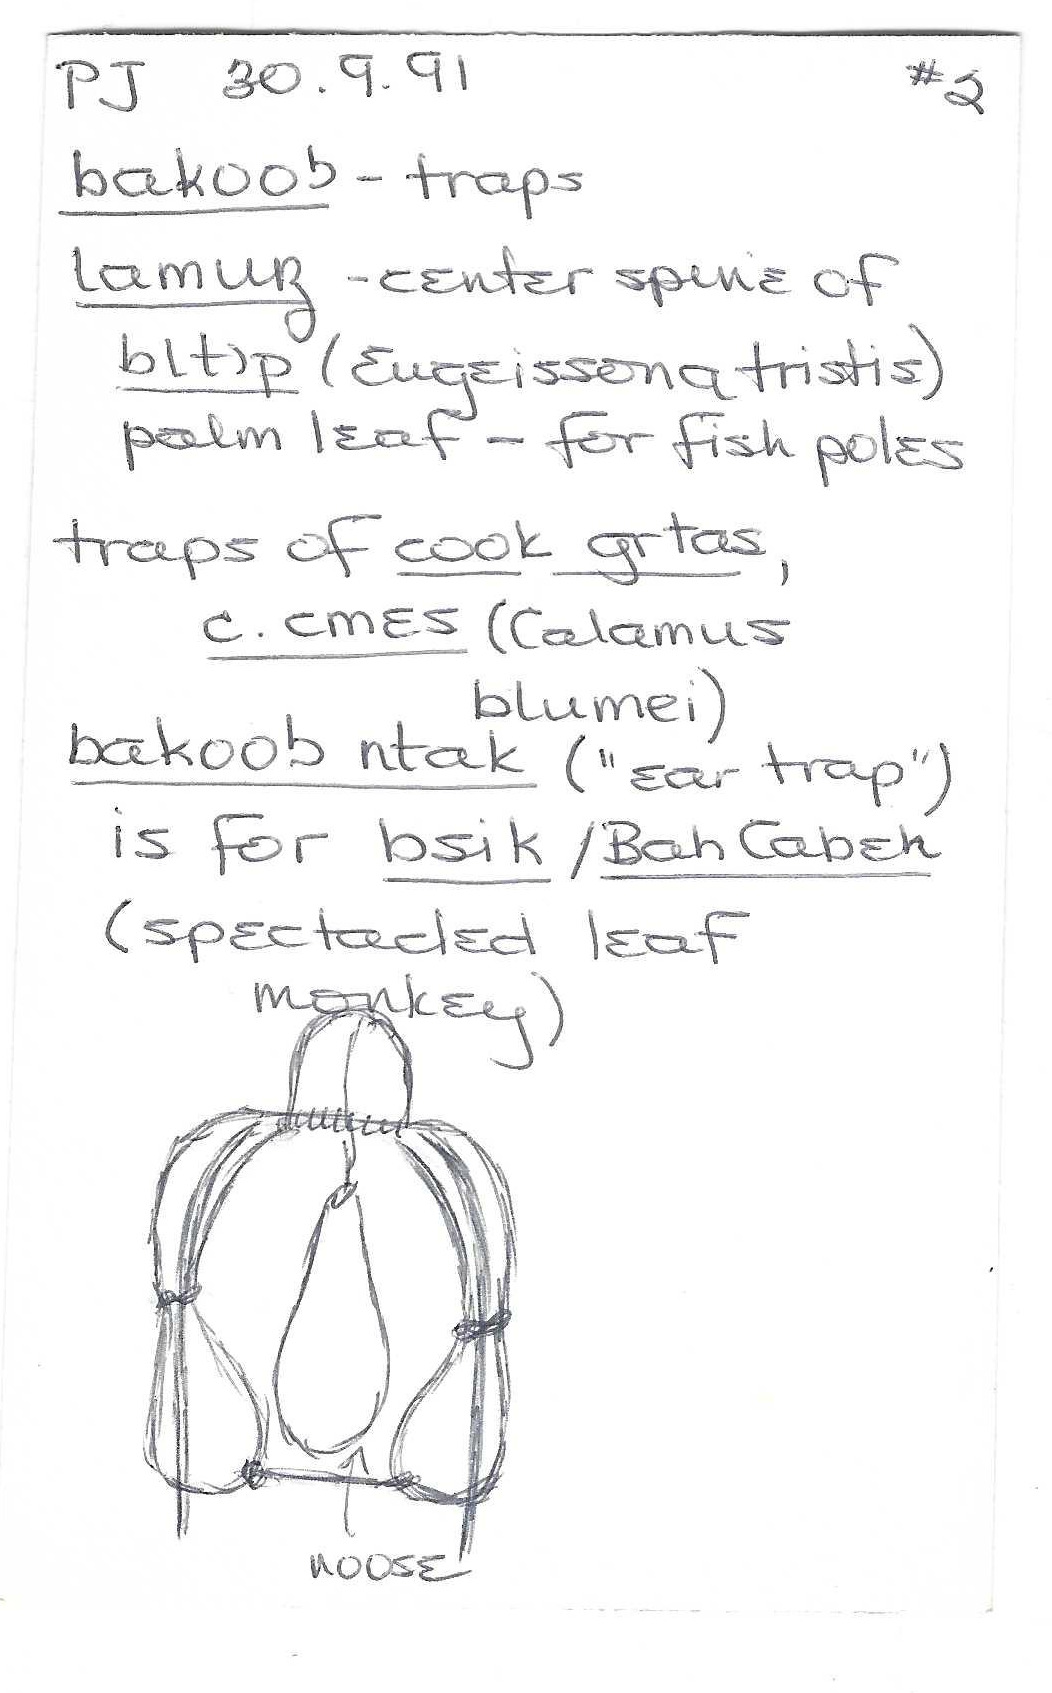 PJ 30.9.91 #2
bakoob - traps
lamuŋ - center spine of
bltɔp (Eugeissona tristis)
palm leaf - for fish poles
traps of cook grtas,
c. cmɛs (Calamus
blumei)
bakoob ntak ("ear trap")
is for bsik / Bah Cabeh
(spectacled leaf
monkey)
noose